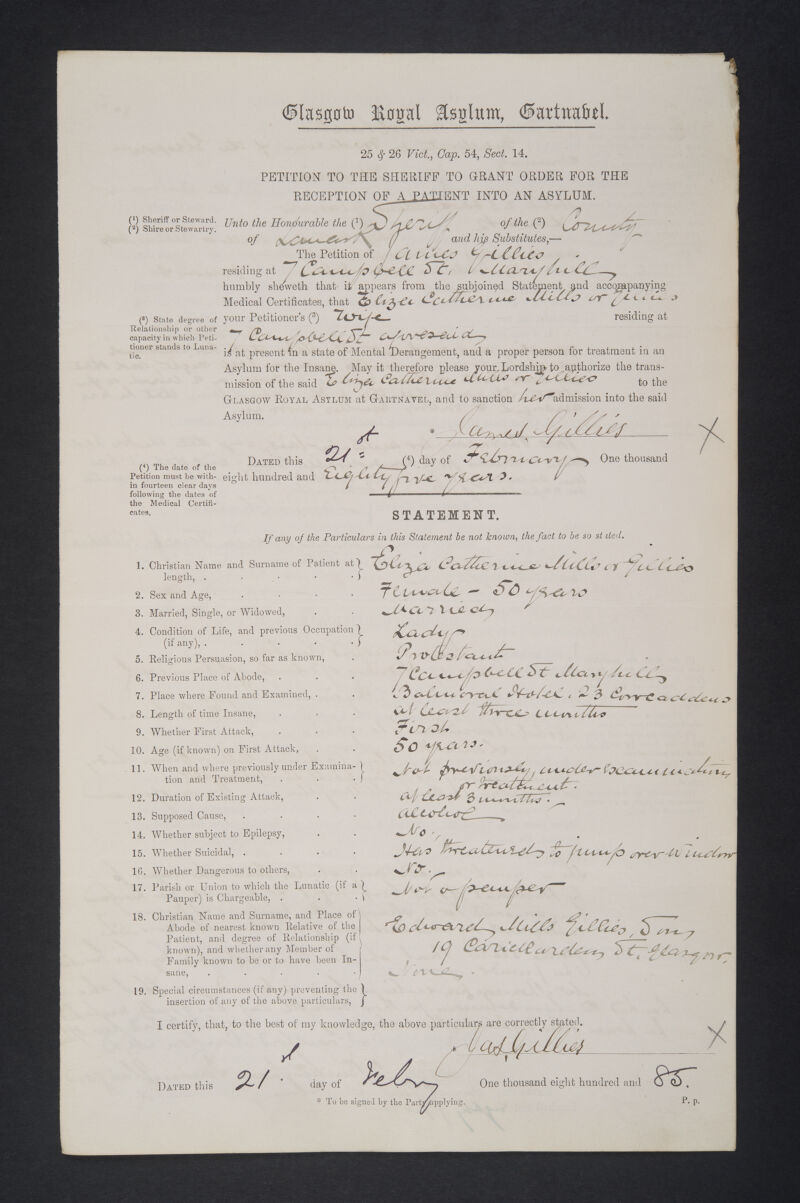 Glasgow Royal Asylum, Gartnabel.
25 & 26 Vict., Cap. 54, Sect. 14.
PETITION TO THE SHERIFF TO GRANT ORDER FOR THE
RECEPTION OF A PATIENT INTO AN ASYLUM.
(1) Sheriff or Steward.
(2) Shire or Stewartry.
Unto the Honourable the (1) Sheriff of the (2) County
of Lanark and his Substitutes,—
The Petition of James Gillies
residing at 7 Campbell St. Maryhill
humbly sheweth that it appears from the subjoined Statement and accompanying
Medical Certificates, that Eliza Catherine Mills or Gillies
(3) State degree of
Relationship or other
capacity in which Peti-
tioner stands to Luna-
tic.
your Petitioner's (3) Wife residing at
7 Campbell St aforesaid
is at present in a state of Mental Derangement, and a proper person for treatment in an
Asylum for the Insane. May it therefore please your Lordship to authorize the trans-
mission of the said Eliza Catherine Mills or Gillies to the
GLASGOW ROYAL ASYLUM at GARTNAVEL, and to sanction her admission into the said
Asylum.
* James Gillies X
(4) The date of the
Petition must be with-
in fourteen clear days
following the dates of
the Medical Certifi-
cates.
DATED this 21st (4) day of February One thousand
eight hundred and Eighty five years.
STATEMENT.
If any of the Particulars in this Statement be not known, the fact to be so stated.
1. Christian Name and Surname of Patient at length, . Eliza Catherine Mills or Gillies
2. Sex and Age, Female - 50 years
3. Married, Single, or Widowed, Married
4. Condition of Life, and previous Occupation (if any), . Lady
5. Religious Persuasion, so far as known, Protestant
6. Previous Place of Abode, 7 Campbell St Maryhill
7. Place where Found and Examined, . Balmoral Hotel, 23 Cowcaddens
8. Length of time Insane, at least three months
9. Whether First Attack, First
10. Age (if known) on First Attack, 50 years.
11. When and where previously under Examina-tion and Treatment, Not previously under examination
or treatment.
12. Duration of Existing Attack, at least 3 months.
13. Supposed Cause, alcohol
14. Whether subject to Epilepsy, No.
15. Whether Suicidal, . Has threatened to jump over Window
16. Whether Dangerous to others, No.
17. Parish or Union to which the Lunatic (if a Pauper) is Chargeable, . Not a pauper
18. Christian Name and Surname, and Place of
Abode of nearest known Relative of the
Patient, and degree of Relationship (if
known), and whether any Member of
Family known to be or to have been In-
sane,
Edward Mills Gillies, Son,
19 St. Glasgow.
None.
19. Special circumstances (if any) preventing the
insertion of any of the above particulars,
I certify, that, to the best of my knowledge, the above particulars are correctly stated.
Jas. Gillies X
DATED this 21st day of Febry One thousand eight hundred and 85.
* To be signed by the Party applying.
P. p.